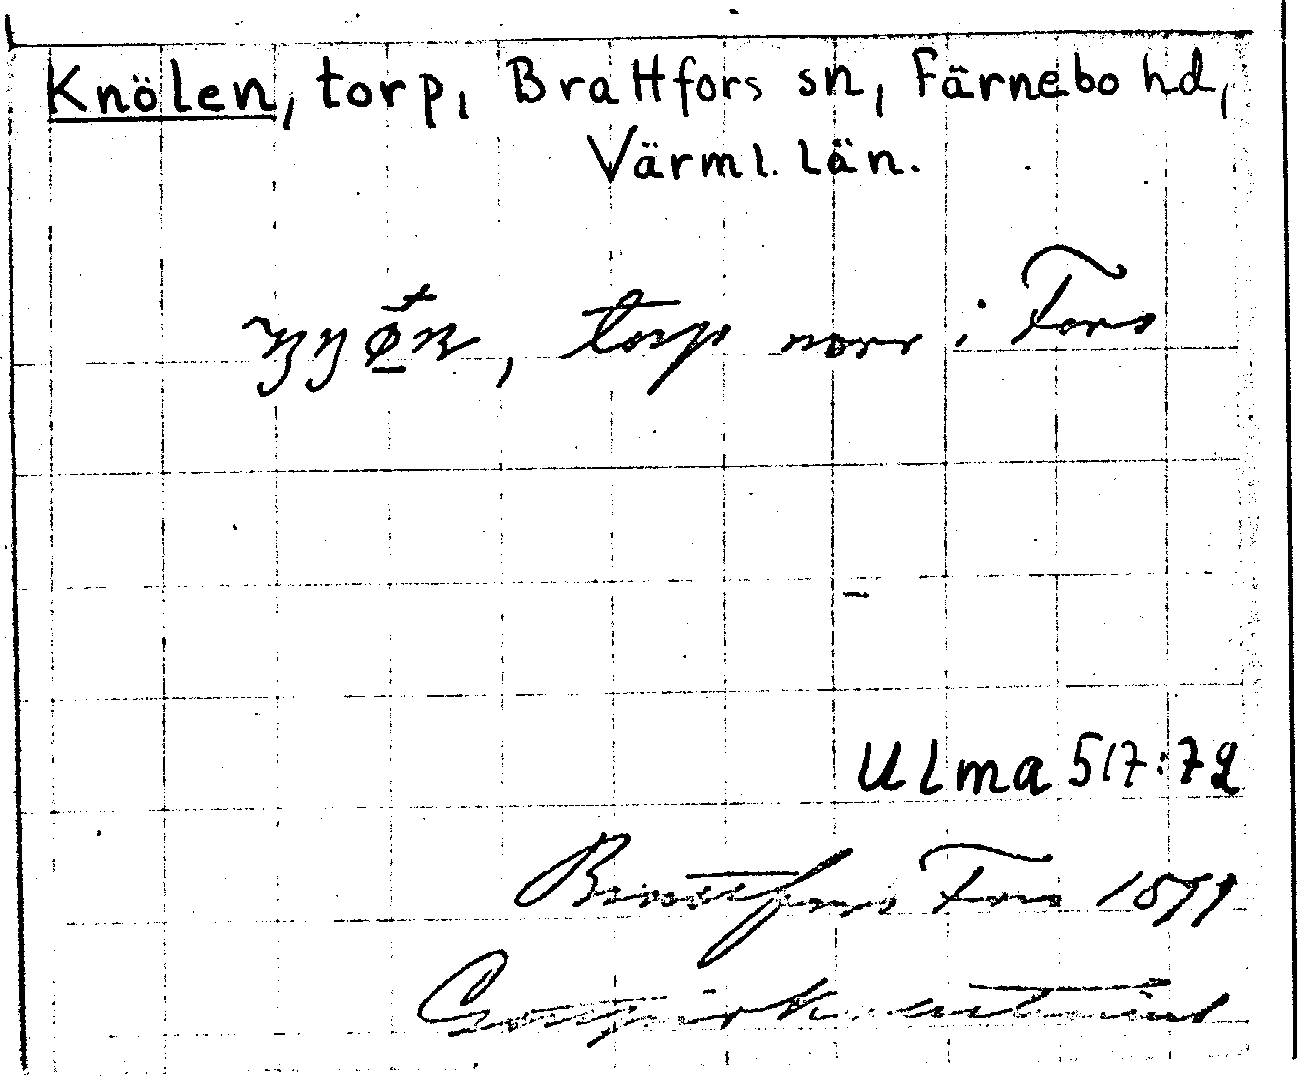 Knölen, torp, Brattfors sn, Färnebo hd,
Värml. län.
, torp norr i Fors
Ulma 517:72
Brattfors Fors 1899